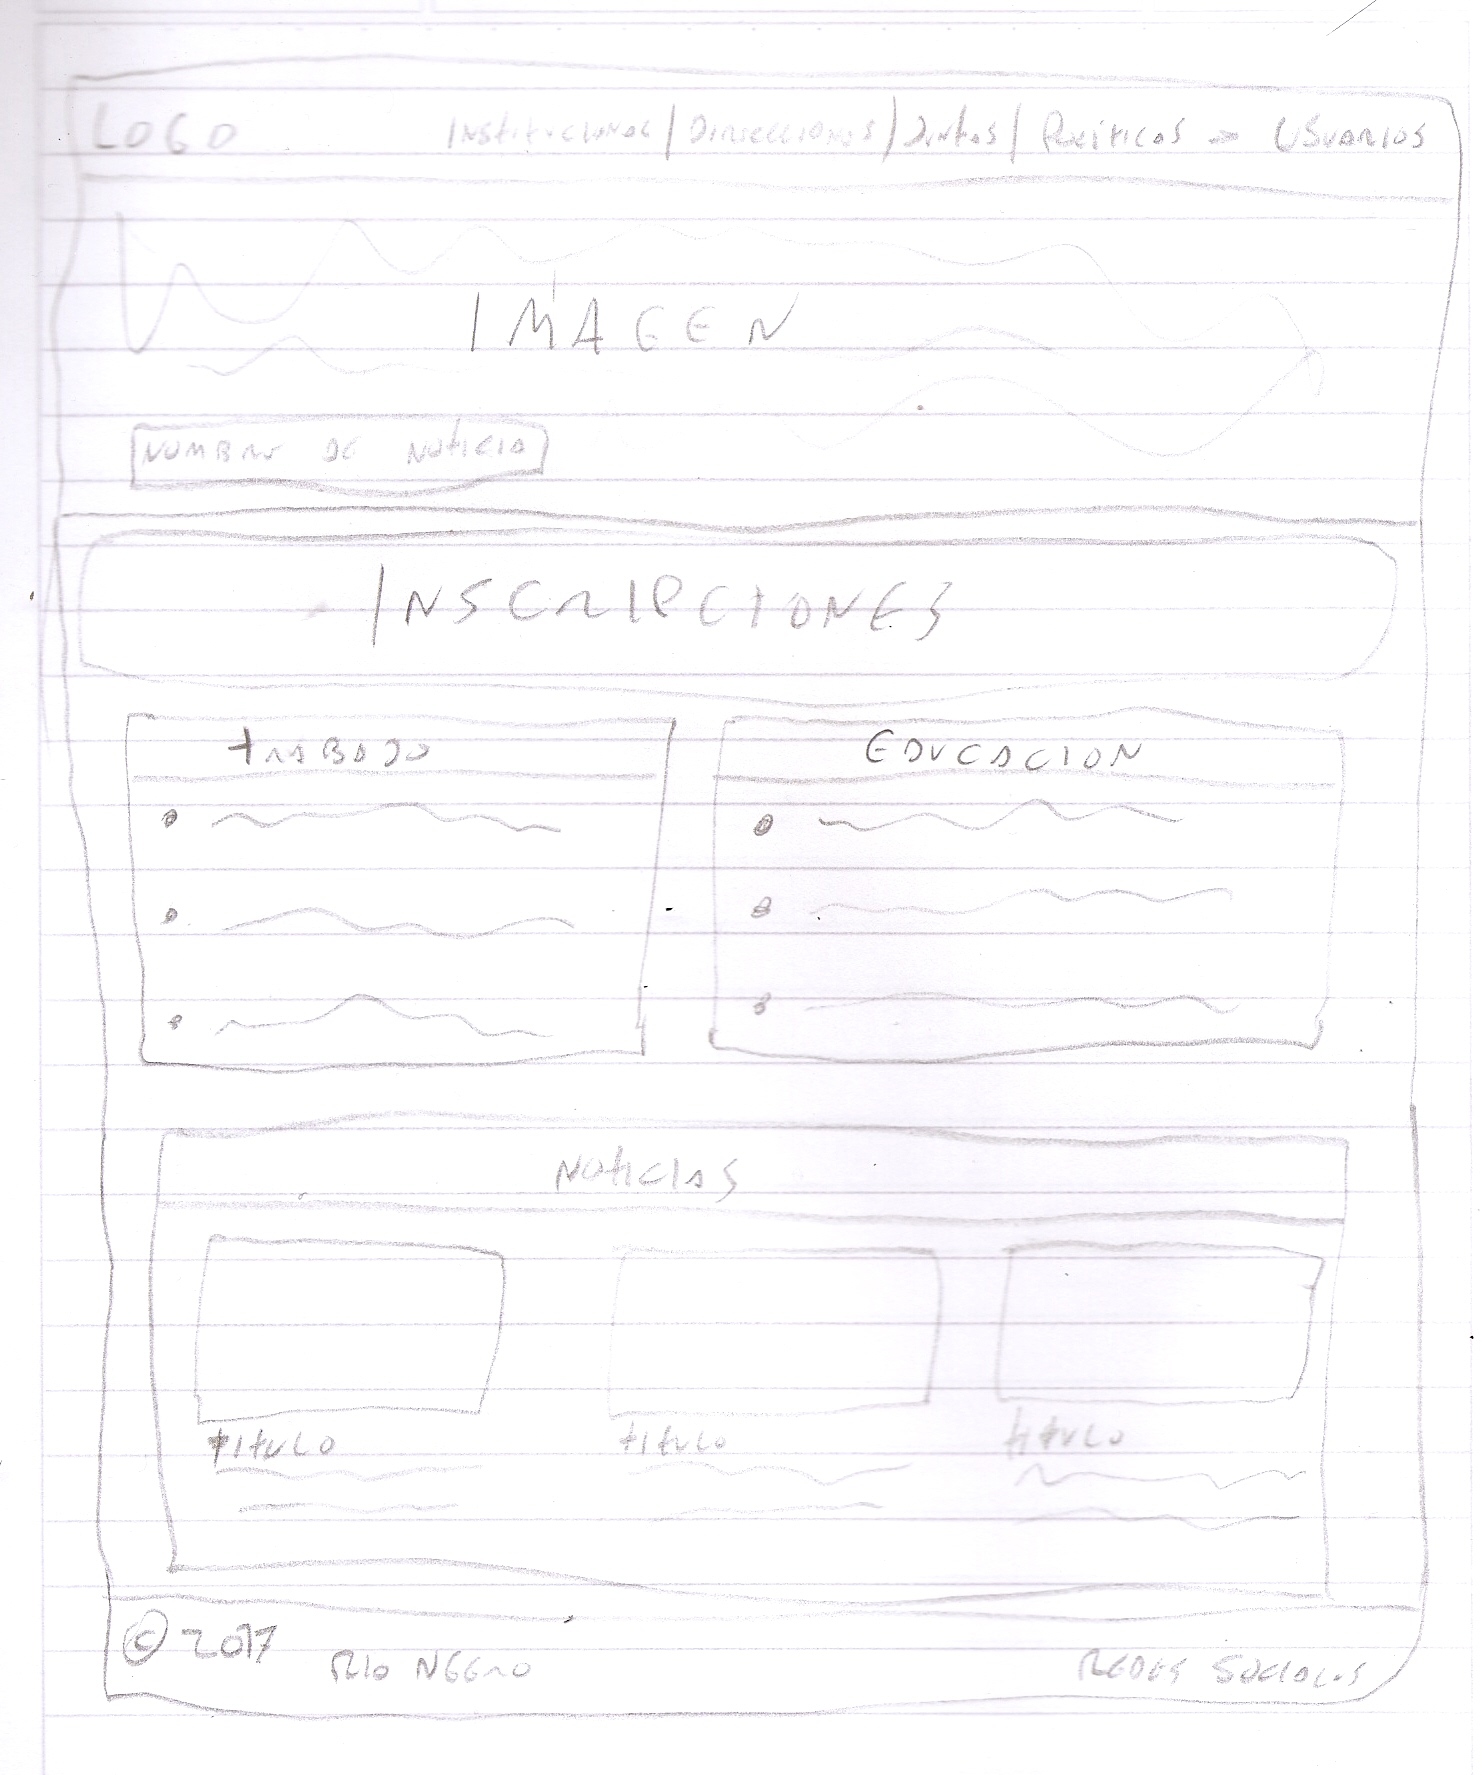 LOGO INSTITUCIONAL / DIRECCIONES / JUNTAS / POLITICAS → USUARIOS
IMAGEN
NOMBRE DE NOTICIA
INSCRIPCIONES
TRABAJO EDUCACION
NOTICIAS
TITULO TITULO TITULO
© 2017 RIO NEGRO REDES SOCIALES